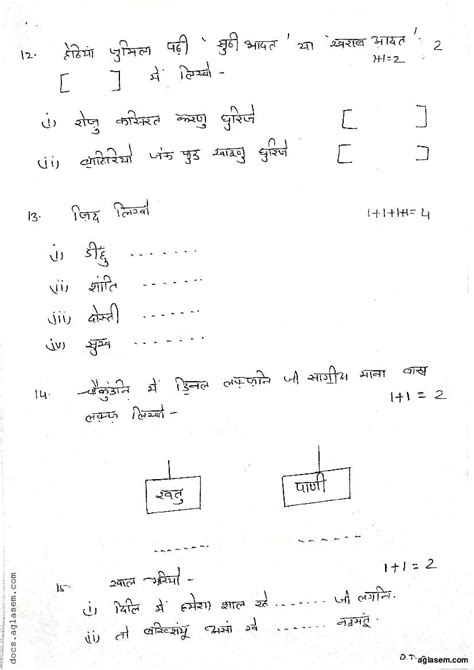 12. हेठियां जुमिला पढ़ी 'सुठी आदत' या 'खराब आदत' 2
[ ] में लिखो - 1+1=2
(i) रोजु कसिरत करणु घुरिजे [ ]
(ii) जंक फुड खाइणु घुरिजे [ ]
13. ज़िद लिखो 1+1+1+1=4
(i) डी॒हुं .......
(ii) शांति .......
(iii) दोस्ती .......
(iv) सुख .......
14. चौकुंडनि में डि॒नल लफ़्ज़नि जी सागी॒य माना वारा
लफ़्ज़ लिखो - 1+1=2
खतु पाणी
....... .......
15. खाल भरियो- 1+1=2
(i) दिलि में हमेशा शाल रहे ..... जी लगनि.
(ii) तो बख़्शियूं असां खे ..... नइमतूं.
D.T.
aglasem.com
docs.aglasem.com